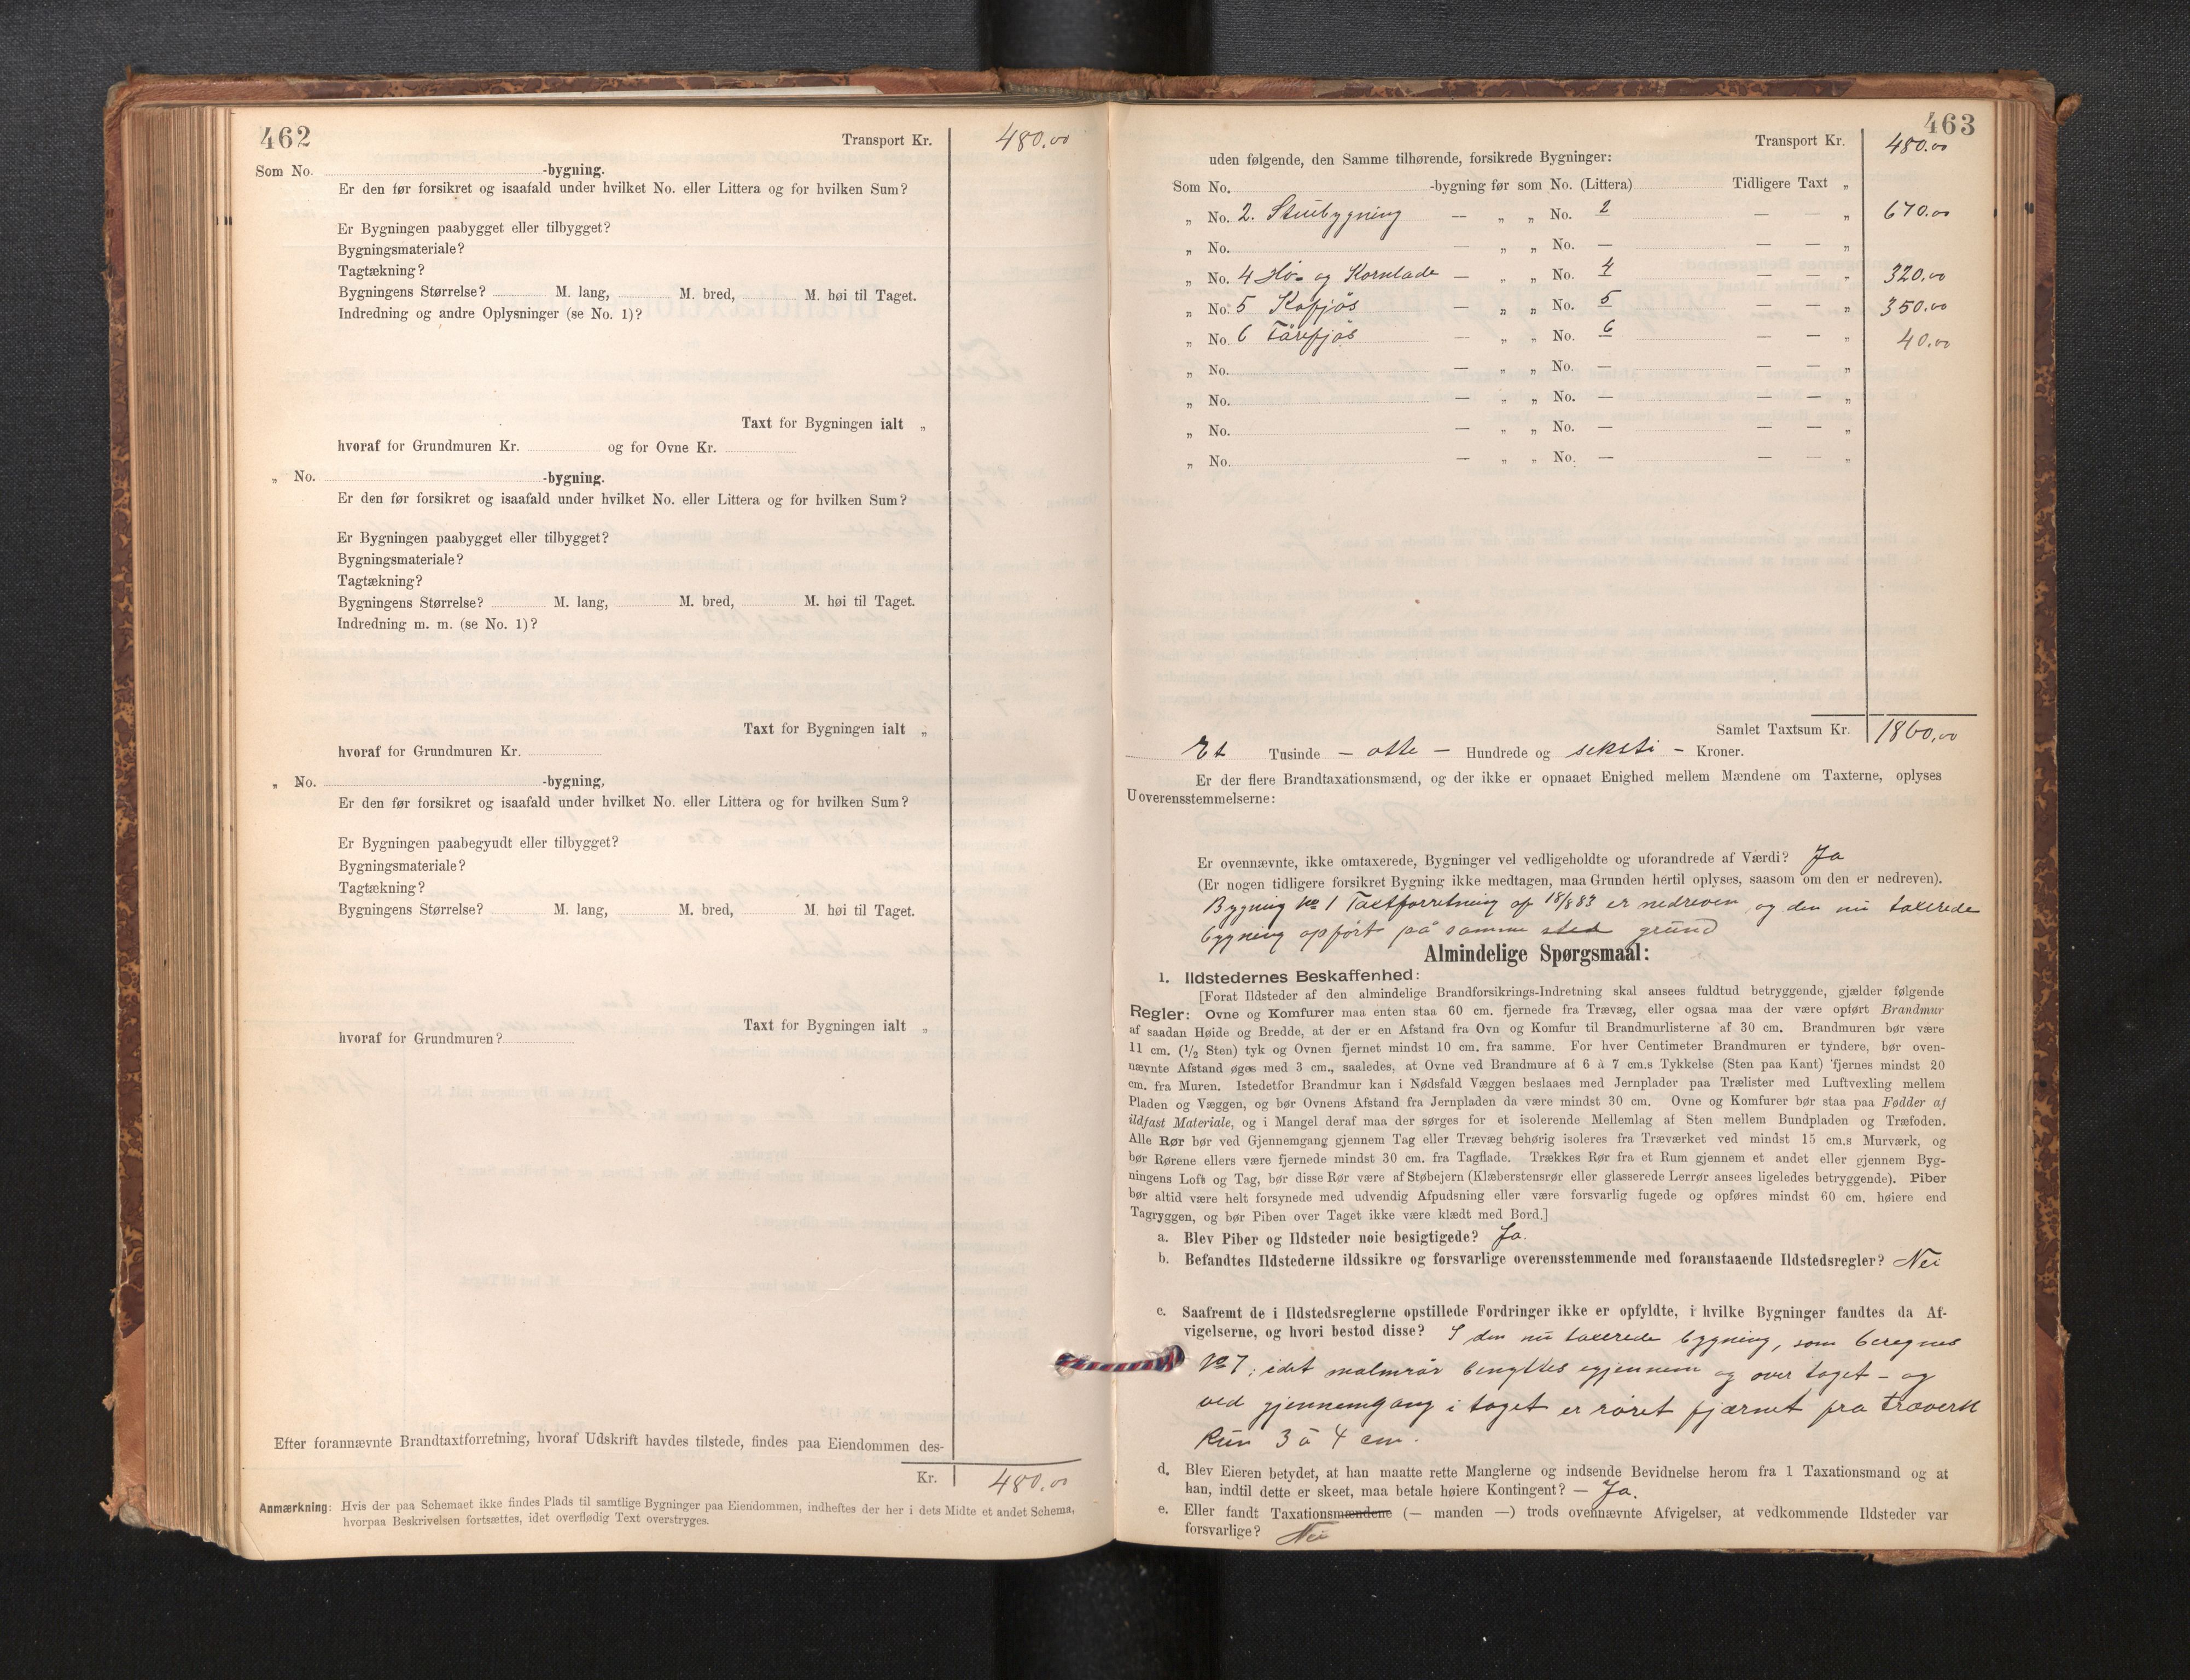 462
Transport Kr. 480.00
Som No. -bygning.
Er den før forsikret og isaafald under hvilket No. eller Littera og for hvilken Sum?
Er Bygningen paabygget eller tilbygget?
Bygningsmateriale?
Tagtækning?
Bygningens Størrelse? M. lang, M. bred, M. høi til Taget.
Indredning og andre Oplysninger (se No. 1)?
Taxt for Bygningen ialt „
hvoraf for Grundmuren Kr. og for Ovne Kr.
„ No. -bygning.
Er den før forsikret og isaafald under hvilket No. eller Littera og for hvilken Sum?
Er Bygningen paabygget eller tilbygget?
Bygningsmateriale?
Tagtækning?
Bygningens Størrelse? M. lang, M. bred, M. høi til Taget.
Indredning m. m. (se No. 1)?
Taxt for Bygningen ialt „
hvoraf for Grundmuren Kr.
„ No. -bygning,
Er den før forsikret og isaafald under hvilket No. eller Littera og for hvilken Sum?
Er Bygningen paabegyudt eller tilbygget?
Bygningsmateriale?
Tagtækning?
Bygningens Størrelse? M. lang, M. bred, M. høi til Taget.
Taxt for Bygningen ialt „
hvoraf for Grundmuren?
Efter forannævnte Brandtaxtforretning, hvoraf Udskrift havdes tilstede, findes paa Eiendommen des-
Kr. 480.00
Anmærkning: Hvis der paa Schemaet ikke findes Plads til samtlige Bygninger paa Eiendommen, indheftes der her i dets Midte et andet Schema,
hvorpaa Beskrivelsen fortsættes, idet overflødig Text overstryges.
463
Transport Kr. 480.00
uden følgende, den Samme tilhørende, forsikrede Bygninger:
Som No. -bygning før som No. (Littera) Tidligere Taxt „
„ No. 2. Stuebygning — „ „ No. 2 — — „ 670.00
„ No. — „ „ No. — — — „
„ No. 4 Hö- og Kornlade — „ „ No. 4 — — „ 320.00
„ No. 5 Kofjös — „ „ No. 5 — — „ 350.00
„ No. 6 Fårefjös — „ „ No. 6 — — „ 40.00
„ No. — „ „ No. — — — „
„ No. — „ „ No. — — — „
„ No. — „ „ No. — — — „
„ No. — „ „ No. — — — „
Samlet Taxtsum Kr. 1860.00
Et Tusinde — otte — Hundrede og seksti — Kroner.
Er der flere Brandtaxationsmænd, og der ikke er opnaaet Enighed mellem Mændene om Taxterne, oplyses
Uoverensstemmelserne:
Er ovennævnte, ikke omtaxerede, Bygninger vel vedligeholdte og uforandrede af Værdi? Ja
(Er nogen tidligere forsikret Bygning ikke medtagen, maa Grunden hertil oplyses, saasom om den er nedreven).
Bygning No 1 Taxtforretning af 18/8 83 er nedreven og den nu taxerede
bygning opført på samme sted grund
Almindelige Spørgsmaal:
1. Ildstedernes Beskaffenhed:
[Forat Ildsteder af den almindelige Brandforsikrings-Indretning skal ansees fuldtud betryggende, gjælder følgende
Regler: Ovne og Komfurer maa enten staa 60 cm. fjernede fra Trævæg, eller ogsaa maa der være opført Brandmur
af saadan Høide og Bredde, at der er en Afstand fra Ovn og Komfur til Brandmurlisterne af 30 cm. Brandmuren bør være
11 cm. (1/2 Sten) tyk og Ovnen fjernet mindst 10 cm. fra samme. For hver Centimeter Brandmuren er tyndere, bør oven-
nævnte Afstand øges med 3 cm., saaledes, at Ovne ved Brandmure af 6 à 7 cm.s Tykkelse (Sten paa Kant) fjernes mindst 20
cm. fra Muren. Istedetfor Brandmur kan i Nødsfald Væggen beslaaes med Jernplader paa Trælister med Luftvexling mellem
Pladen og Væggen, og bør Ovnens Afstand fra Jernpladen da være mindst 30 cm. Ovne og Komfurer bør staa paa Fødder af
ildfast Materiale, og i Mangel deraf maa der sørges for et isolerende Mellemlag af Sten mellem Bundpladen og Træfoden.
Alle Rør bør ved Gjennemgang gjennem Tag eller Trævæg behørig isoleres fra Træværket ved mindst 15 cm.s Murværk, og
bør Rørene ellers være fjernede mindst 30 cm. fra Tagflade. Trækkes Rør fra et Rum gjennem et andet eller gjennem Byg-
ningens Loft og Tag, bør disse Rør være af Støbejern (Klæberstensrør eller glasserede Lerrør ansees ligeledes betryggende). Piber
bør altid være helt forsynede med udvendig Afpudsning eller være forsvarlig fugede og opføres mindst 60 cm. høiere end
Tagryggen, og bør Piben over Taget ikke være klædt med Bord.]
a. Blev Piber og Ildsteder nøie besigtigede? Ja.
b. Befandtes Ildstederne ildssikre og forsvarlige overensstemmende med foranstaaende Ildstedsregler? Nei
c. Saafremt de i Ildstedsreglerne opstillede Fordringer ikke er opfyldte, i hvilke Bygninger fandtes da Af-
vigelserne, og hvori bestod disse? I den nu taxerede bygning, som beregnes
No 7; idet malmrör benyttes igjennem og over taget - og
ved gjennemgang i taget er röret fjærnet fra træverk
kun 3 à 4 cm.
d. Blev Eieren betydet, at han maatte rette Manglerne og indsende Bevidnelse herom fra 1 Taxationsmand og at
han, indtil dette er skeet, maa betale høiere Kontingent? — Ja.
e. Eller fandt Taxationsmændene (— manden —) trods ovennævnte Afvigelser, at vedkommende Ildsteder var
forsvarlige? Nei